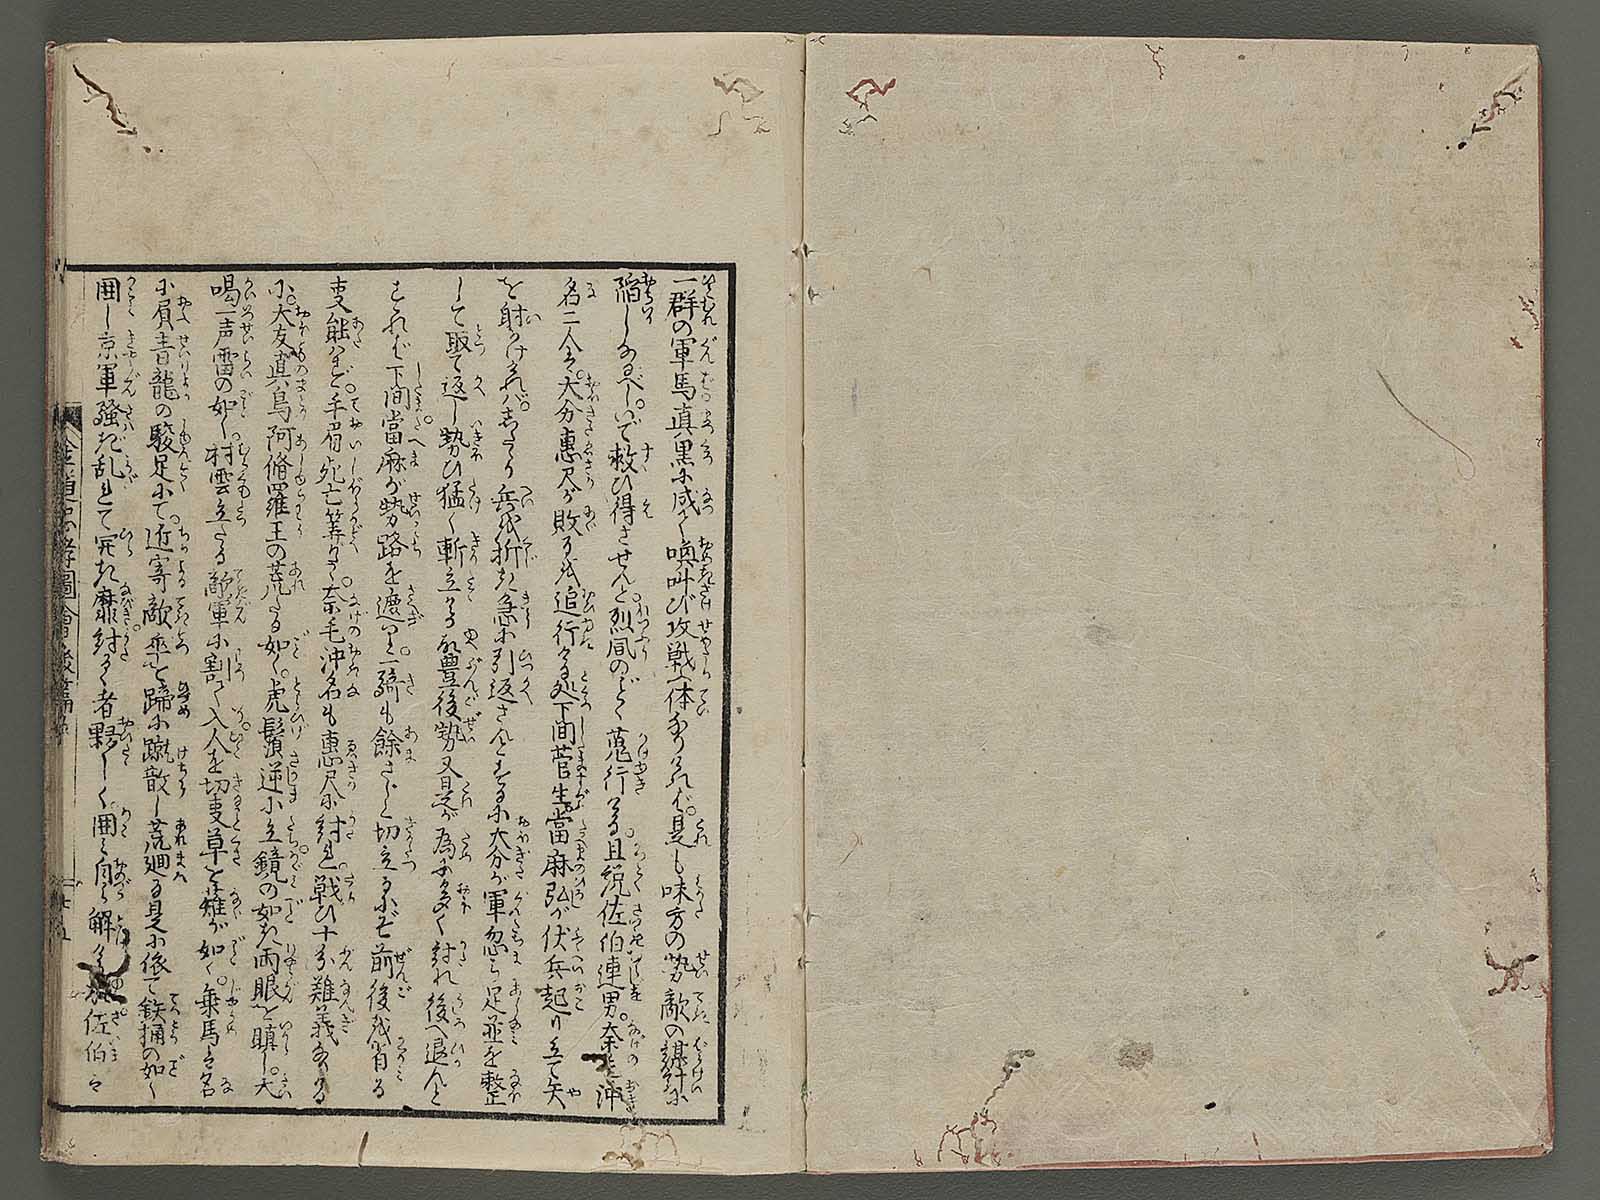 一群の軍馬真黒に成て喚叫び攻戦体なりければ是も味方の勢敵の謀計に
陥しなるべしいで救ひ得させんと烈風のごとく蒐行ける且説佐伯連男奈毛沖
名二人は大分惠尺が敗るを追行ける処下間菅生當麻弘が伏兵起り立て矢
を射かけければ兵を折き急に引返さんとするに大分が軍忽ち足並を整
して取て返し勢ひ猛く斬立ける故豊後勢又是が為に多く討れ後へ退んと
すれば下間當麻が勢路を遮りて一騎も餘さじと切立るにぞ前後を省る
事能はず手負死亡算なく奈毛沖名も惠尺に討れ戦ひ十分難義なる
に大友真鳥阿脩羅王の荒たる如く虎鬚逆に立鏡の如き両眼を瞋し大
喝一声雷の如く村雲立たる敵軍に割て入人を切事草を薙が如く乗馬は名
に負青龍の駿足にて近寄敵兵を蹄に蹴散し荒廻る是に依て鉄桶の如く
囲し京軍騒ぎ乱れて開き靡討るゝ者夥しく囲も自ら解ければ佐伯は